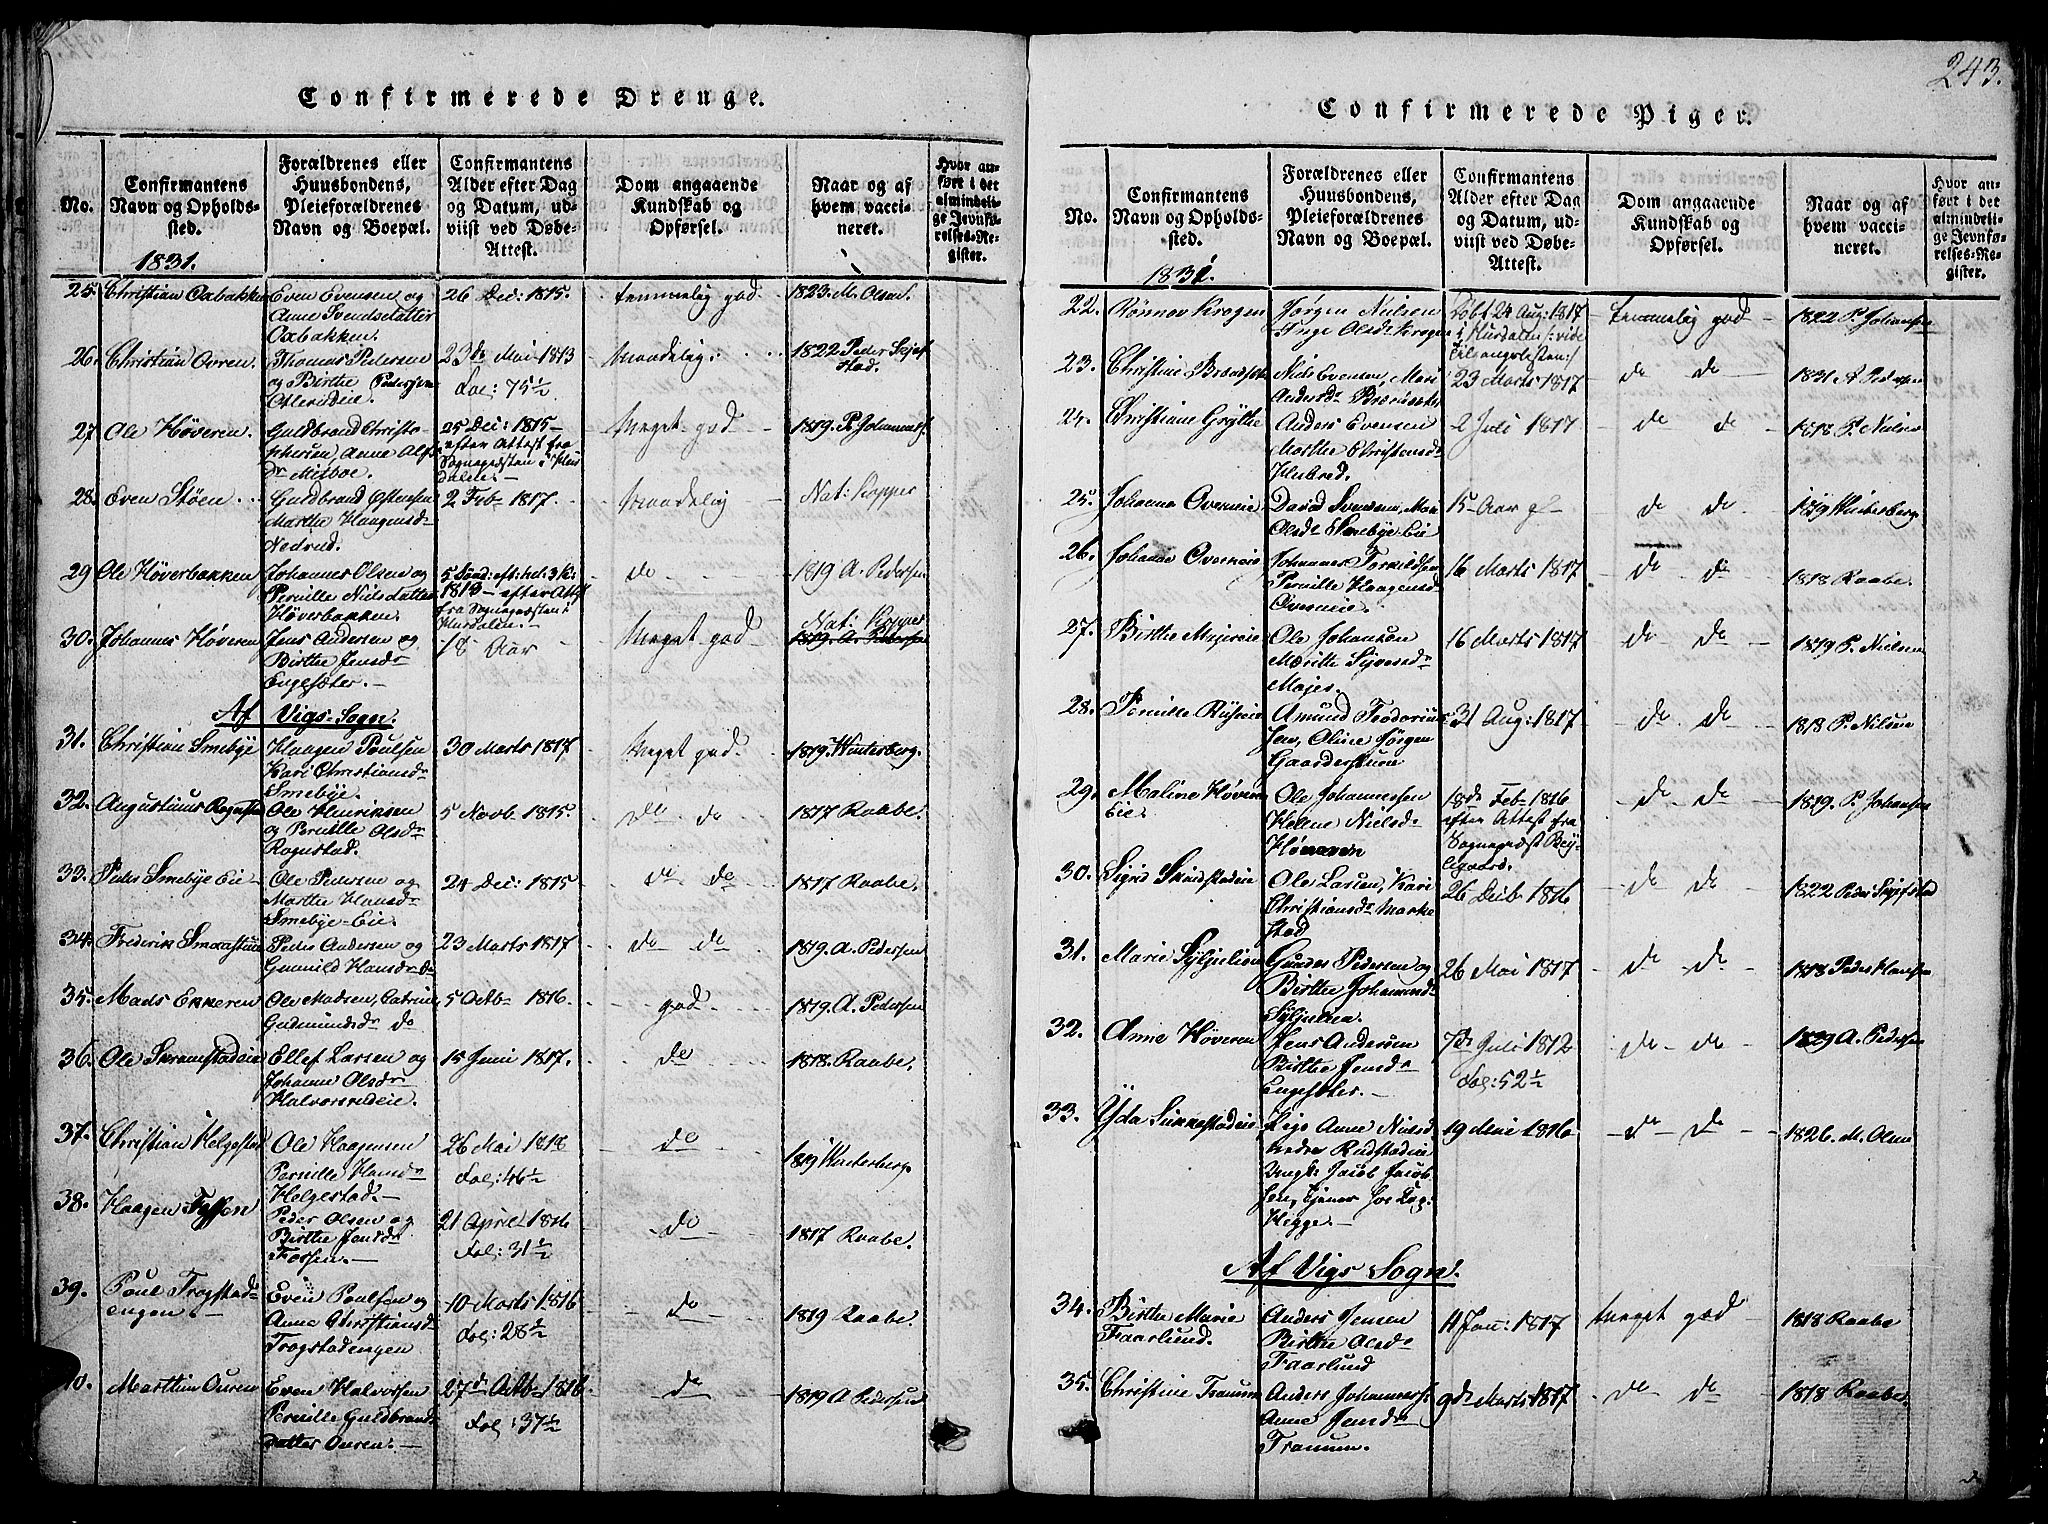 243.
Confirmerede Drenge.
No.
Confirmantens
Navn og Opholds-
sted.
1831.
Forældrenes eller
Huusbondens,
Pleieforældrenes
Navn og Boepæl.
Confirmantens
Alder efter Dag
og Datum, ud-
viist ved Døbe-
Attest.
Dom angaaende
Kundskab og
Opførsel.
Naar og af
hvem vacci-
neret.
Hvor an-
ført i det
almindeli-
ge Jevnfø-
relses-Re-
gister.
25. Christian Oxbakken
Even Evensen og
Anne Svendsdatter
Oxbakken.
26 Dec: 1815.
temmelig god
1823. M. Olsen.
26. Christian Ovren.
Thomas Pedersen
og Birthe Peders
23de Mai 1813
Fol: 75½
maadelig.
1822 Peder Skjef
stad.
27. Ole Høveren.
Guldbrand Christo-
phersen, Anne Olsd
Mitboe.
25 Dec: 1815
efter Attest fra
Sognepræsten i Hur
dalen.
Meget god
1819. P. Johannes.
28. Even Støen
Guldbrand Østensen
Marthe Haagensdr
Nedrud.
2 Feb 1817.
maadelig
Nat: Kopper
29 Ole Høverbakken
Johannes Olsen og
Pernille Nielsdatter
Høverbakken.
5 Sønd: eft: hel: 3 K:
1813 efter Attest
fra Sognepræsten i
Hurdalen.
do
1819 A. Pedersen
30. Johannes Høveren
Jens Andersen og
Birthe Jensdr
Engesæter.
18 Aar
Meget god
Nat: Kopper
1819. A. Pedersen
Af Vigs-Sogn.
31. Christian Smebye
Haagen Poulsen
Kari Christiansdr
Smebye.
30 Marts 1817
Meget god
1819. Winterberg.
32. Augustinus Rognstad
Ole Henriksen
og Pernille Olsdr
Rognstad.
5 Novb. 1815.
do do
1817 Raabe.
33. Peder Smebye Eie
Ole Pedersen og
Marthe Hansdr
Smebye-Eie.
24 Dec: 1815
do do
1817 Raabe.
34. Frederik Smaastuen
Peder Andersen og
Gunnild Hansdr do
23 Marts 1817
do do
1819. A. Pedersen
35. Mads Ekkeren
Ole Madsen, Catrine
Gudmundsdr do
5 Octb 1816.
god
1819. A. Pedersen
36. Ole Skramstadeie
Ellef Larsen og
Johanne Olsdr
Halvorsrudeie.
15 Juni 1817.
do
1818. Raabe.
37. Christian Helgestad
Ole Haagensen
Pernille Hansdr
Helgestad.
26 Mai 1818
Fol: 46½
do
1819 Winterberg.
38. Haagen Fossen
Peder Olsen og
Birthe Jensdr
Fossen.
21 April 1816
Fol: 31½
do
1817 Raabe.
39. Poul Trogstad-
engen
Even Poulsen og
Anne Christiansd
Trogstadengen
10 Marts 1816
Fol: 28½
do
1819 Raabe.
40. Marthin Ouren
Even Halvorsen
Pernille Guldbrands
datter Ouren.
27de Octb 1816.
Fol: 37½
do
1819 A Pedersen
Confirmerede Piger.
No.
Confirmantens
Navn og Opholds-
sted.
1831.
Forældrenes eller
Huusbondens,
Pleieforældrenes
Navn og Boepæl.
Confirmantens
Alder efter Dag
og Datum, ud-
viist ved Døbe-
Attest.
Dom angaaende
Kundskab og
Opførsel.
Naar og af
hvem vacci-
neret.
Hvor an-
ført i det
almindeli-
ge Jevnfø-
relses-Re-
gister.
22. Rønnov Krogen
Jørgen Nielsen
Inge Olsdr Krogen
Døbt 24 Aug: 1817
i Hurdalen /: vide
Tilgangslisten:/
temmelig god
1822 P. Johansen
23. Christine
Niels Evensen, Mari
Andersdr
23 Marts 1817
do do
1831 A Pedersen
24. Christiane Grythe
Anders Evensen
Marthe Christensdr
2 Juli 1817
do do
1818 P. Nielsen
25. Johanne Overneie
David Svendsen, Mari
Olsdr Smebye Eie
15 Aar gl
do do
1819 Winterberg
26. Johanne Overneie
Johannes Torkildsen
Pernille Haagensdr
Overneie.
16 Marts 1817
do do
1818 Raabe.
27. Birthe Majereie
Ole Johansen
Marithe Syversdr
Majer.
16 Marts 1817
do do
1819 P. Nielsen
28. Pernille Riiseie
Amund Frederik
sen, Oline Jørgen
Gaarderstuen
31 Aug: 1817
do do
1818 P. Nilsen
29. Maline Høveren
Eie.
Ole Johannessen
Helene Nielsd
Høveren
18de Feb 1816
efter Attest fra
Sognepræst Bey-
legaard.
do do
1819. P. Johansen
30. Sigrid Skredstadeie
Ole Larsen, Kari
Christiansdr Marke
stad
26 Decb 1816
do do
1822 Peder Skjefstad
31. Marie Syljulien
Gunder Pedersen og
Birthe Johannesdr
Syljulien.
26 Mai 1817
do do
1818 Peder Hansen
32. Anne Høveren
Jens Andersen
Birthe Jensdr
Engesæter.
7de Juli 1812
Fol: 52½
do do
1829 A. Pedersen
33. Yda Sukkestadeie
Pige Anne Nielsd
nedre Rudstadeie
Ungk: Jacob Jacob
sen, tjener hos Lag:
Hegge.
19 Mai 1816
do do
1826. M. Olsen
Af Vigs Sogn.
34. Birthe Marie
Faarlund.
Anders Jensen
Birthe Olsdr
Faarlund
11 Jan: 1817
Meget god
1818 Raabe
35. Christine Tranum
Anders Johanness.
Anne Jensdr
Tranum.
9de Marts 1817
do do
1818 Raabe.